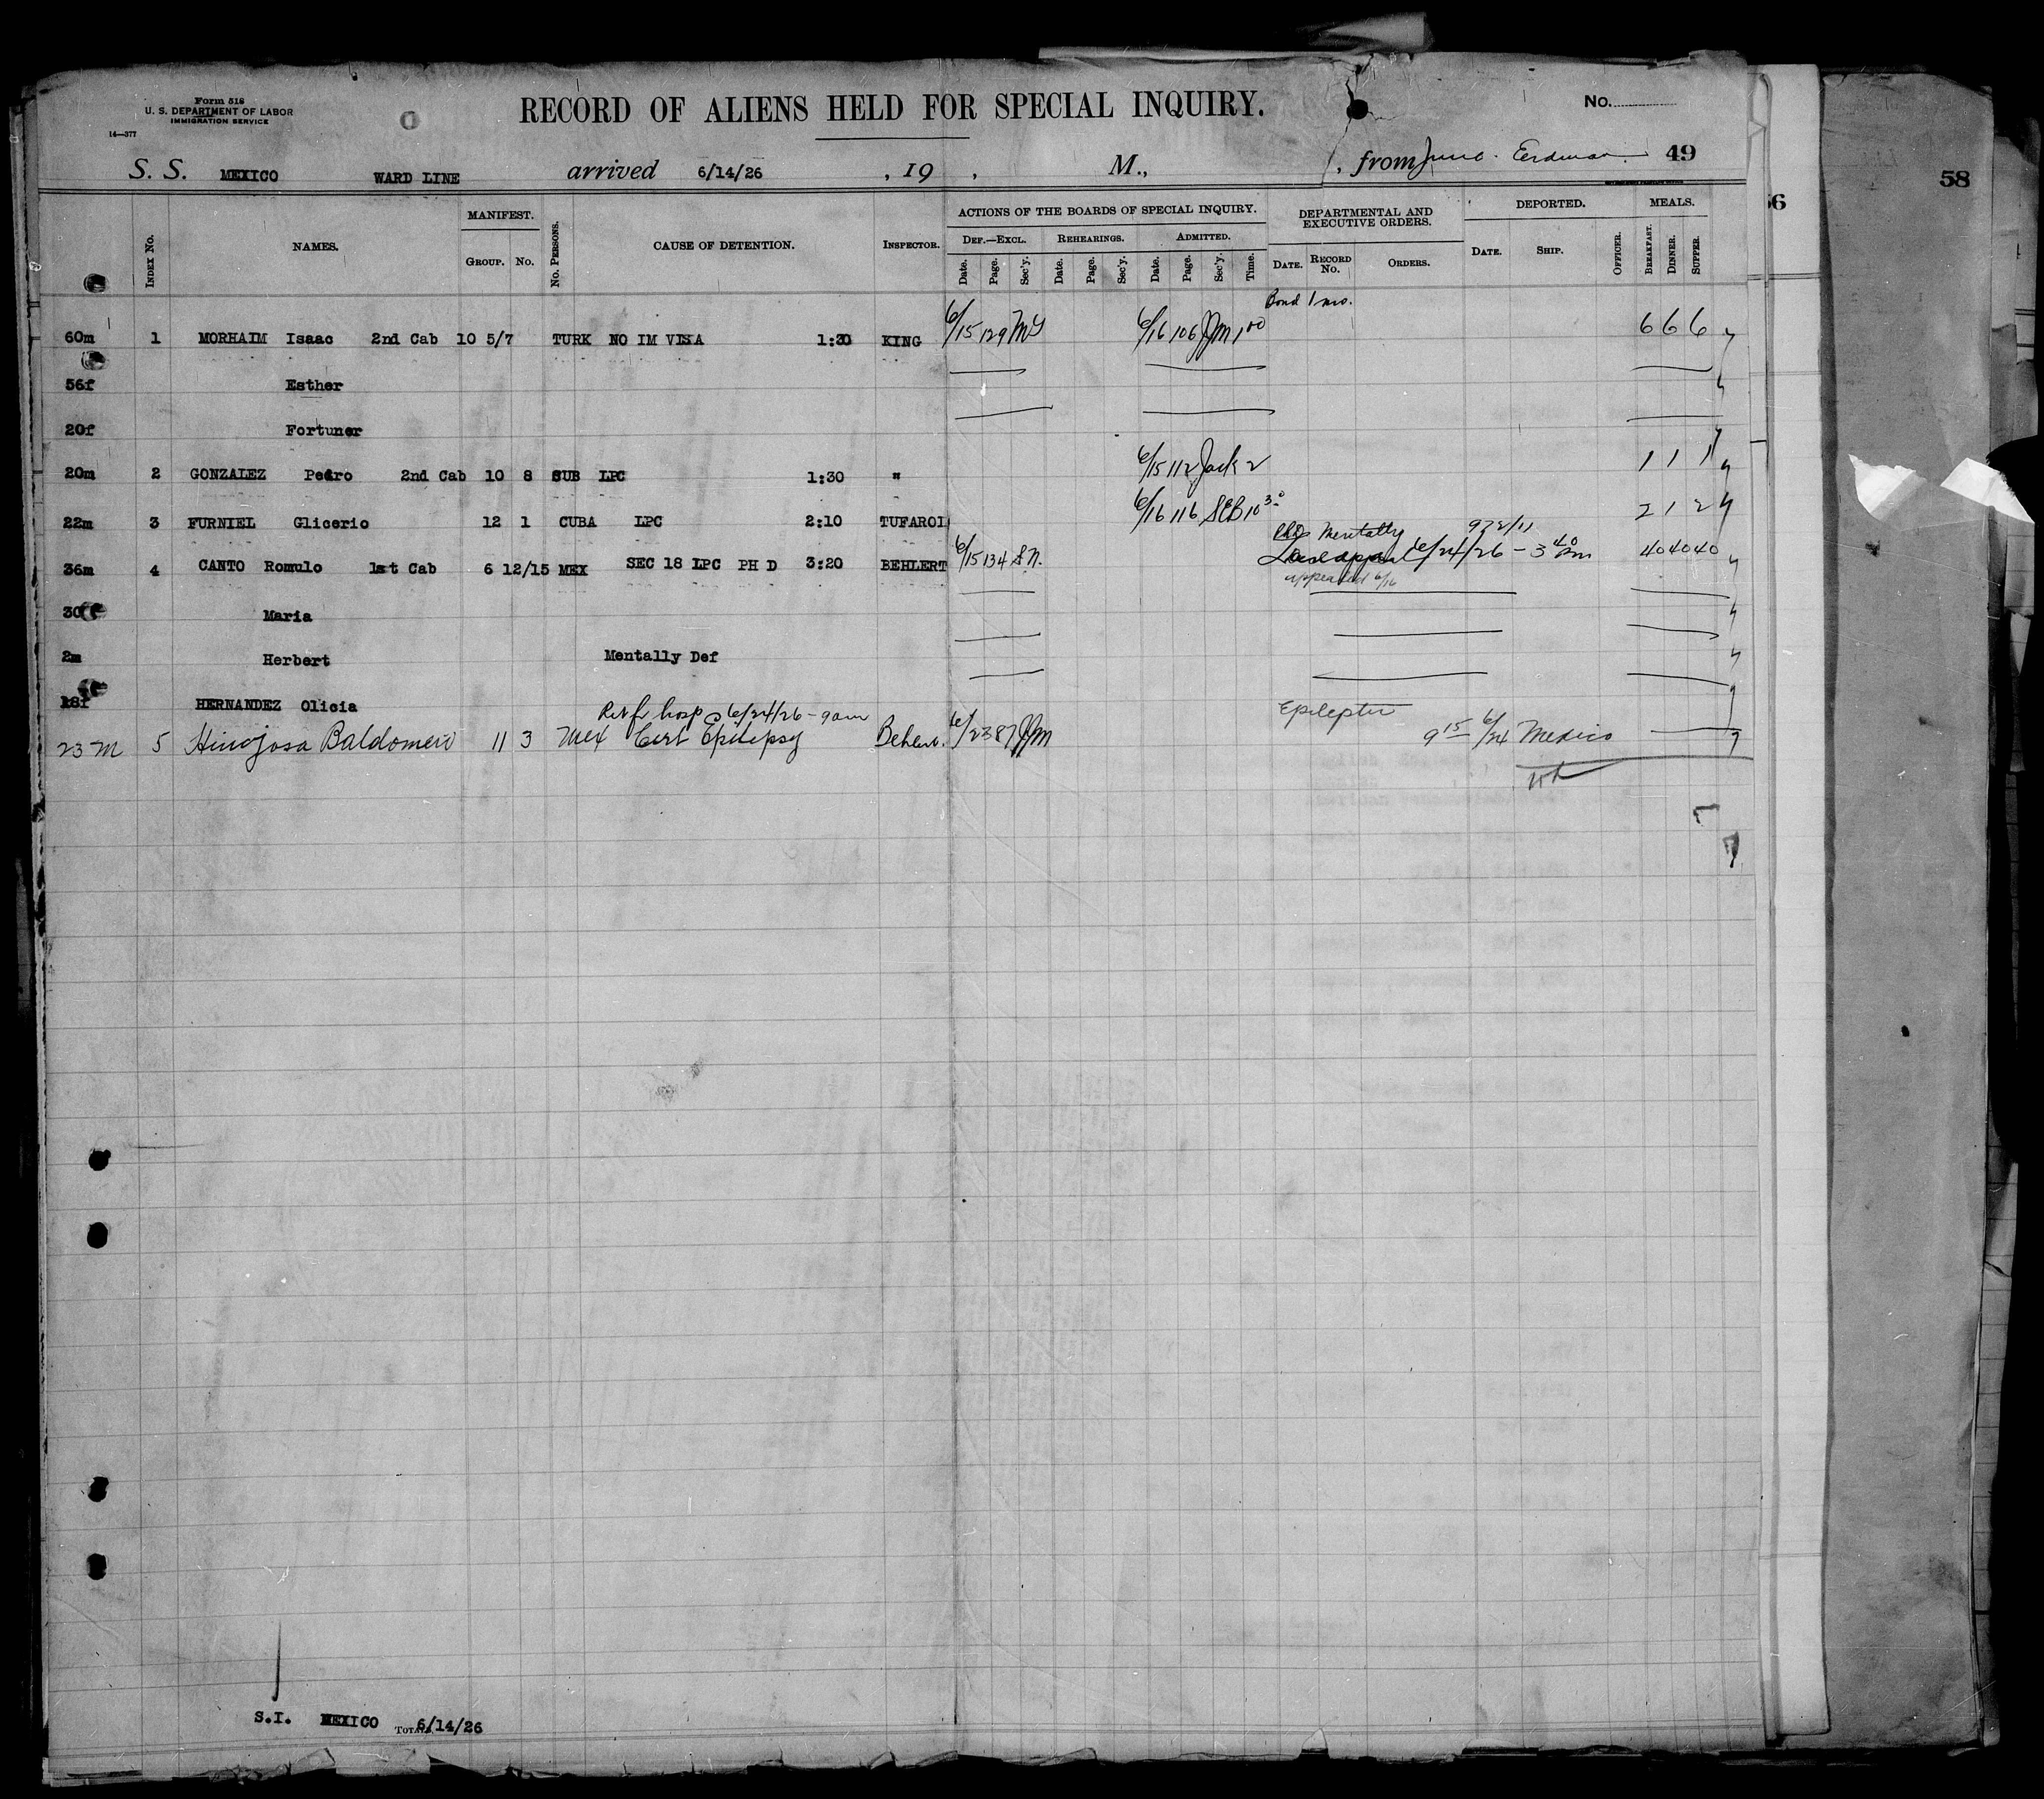 Form 518
U. S. DEPARTMENT OF LABOR
IMMIGRATION SERVICE
14—377
RECORD OF ALIENS HELD FOR SPECIAL INQUIRY.
No.
S. S. MEXICO WARD LINE arrived 6/14/26 , 19 , M., , from 49
58
56
INDEX No. NAMES. MANIFEST. GROUP. No. No. PERSONS. CAUSE OF DETENTION. INSPECTOR. ACTIONS OF THE BOARDS OF SPECIAL INQUIRY. DEF.—EXCL. Date. Page. Sec'y. REHEARINGS. Date. Page. Sec'y. ADMITTED. Date. Page. Sec'y. Time. DEPARTMENTAL AND EXECUTIVE ORDERS. DATE. RECORD No. ORDERS. DEPORTED. DATE. SHIP. OFFICER. MEALS. BREAKFAST. DINNER. SUPPER.
Bond 1 mo.
60m 1 MORHAIM Isaac 2nd Cab 10 5/7 TURK NO IM VISA 1:30 KING 6/15 129 6/16 106 JJM 1 00 6 6 6
56f Esther
20f Fortuner
20m 2 GONZALEZ Pedro 2nd Cab 10 8 SUB LPC 1:30 " 6/15 112 Jack 2 1 1 1
22m 3 FURNIEL Glicerio 12 1 CUBA LPC 2:10 TUFAROL 6/16 116 SEB 10 30 2 1 2
Mentally 972/11
36m 4 CANTO Romulo 1st Cab 6 12/15 MEX SEC 18 LPC PH D 3:20 BEHLERT 6/15 134 S N. appeal 6/24/26 - 3 40 Pm 40 40 40
appealed 6/16
30 Maria
2m Herbert Mentally Def
18f HERNANDEZ Olicia
Ret fr hosp 6/24/26 - 9 am Epileptic
23 M 5 Hinojosa Baldomero 11 3 Mex Cert Epilepsy Behlert. 6/23 87 JJM 9 15 6/24 Mexico
S.I. MEXICO TOTAL 6/14/26